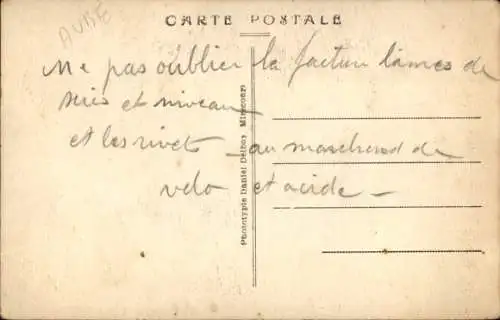 AUBE
CARTE POSTALE
Ne pas oublier la facture lames de
scies et niveau
et les rivets - au marchand de
velo et acide -
Phototypie Daniel Delboy, Mirecourt